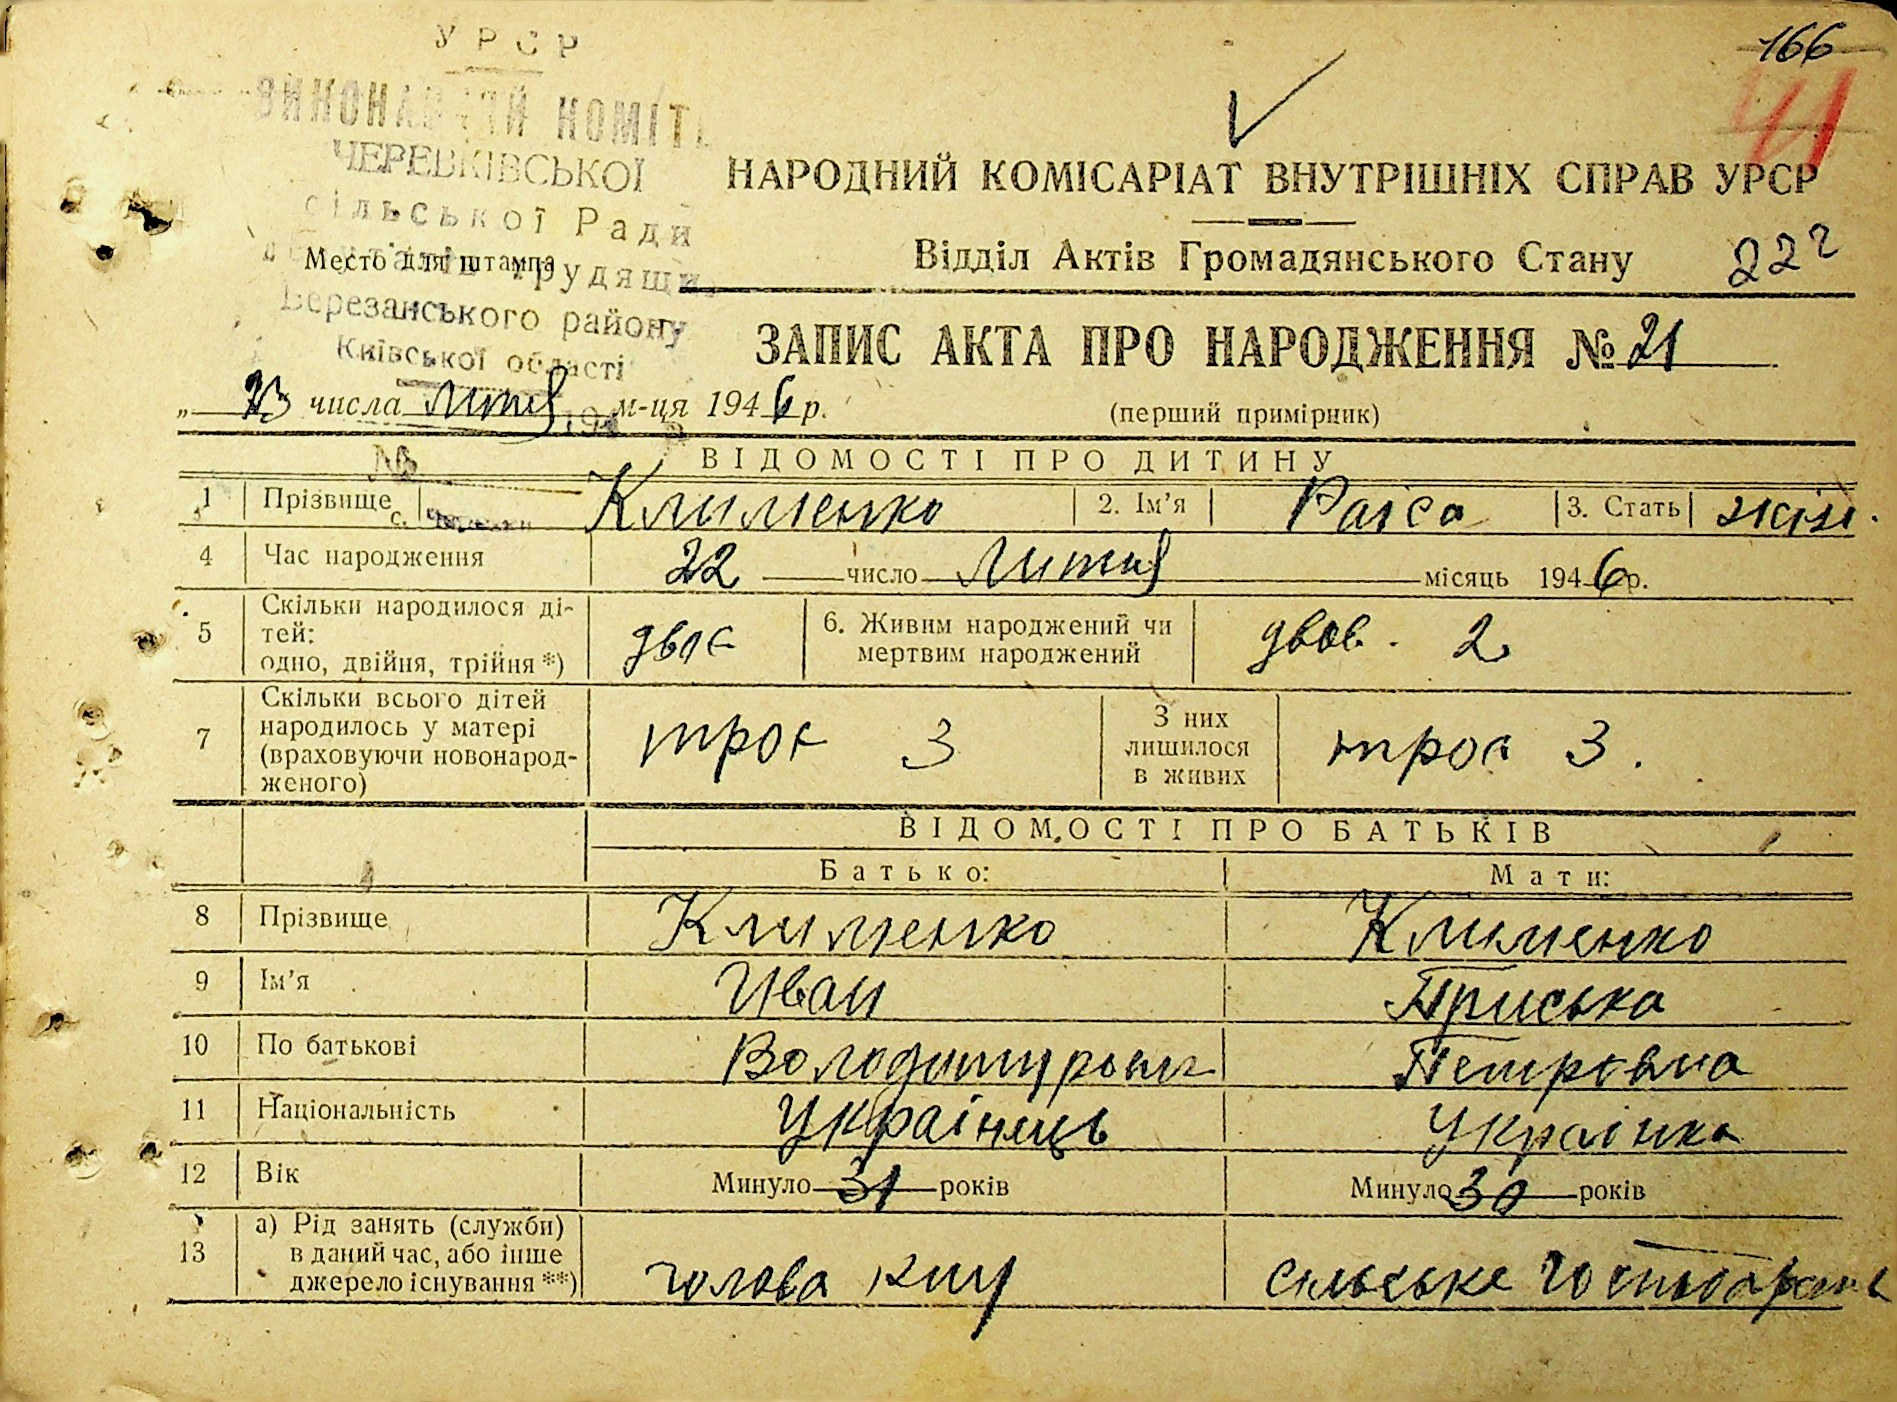 166
41
УРСР
ВИКОНАВЧИЙ КОМІТЕТ
ЧЕРЕВКІВСЬКОЇ
сільської Ради
депутатів трудящих
Березанського району
Київської області
Место для штампа
НАРОДНИЙ КОМІСАРІАТ ВНУТРІШНІХ СПРАВ УРСР
Відділ Актів Громадянського Стану
22²
ЗАПИС АКТА ПРО НАРОДЖЕННЯ № 21
„ 23 числа лютий м-ця 1946 р. (перший примірник)
№
ВІДОМОСТІ ПРО ДИТИНУ
1 Прізвище Клименко 2. Ім'я Раіса 3. Стать жін.
с.
4 Час народження 22 число Лютий місяць 1946 р.
5 Скільки народилося ді-
тей:
одно, двійня, трійня *) двоє 6. Живим народжений чи
мертвим народжений двов. 2
7 Скільки всього дітей
народилось у матері
(враховуючи новонарод-
женого) троє 3 З них
лишилося
в живих троє 3.
ВІДОМОСТІ ПРО БАТЬКІВ
Батько: Мати:
8 Прізвище Клименко Клименко
9 Ім'я Иван Приська
10 По батькові Володимирович Петровна
11 Національність Українець Українка
12 Вік Минуло 31 років Минуло 30 років
13 а) Рід занять (служби)
в даний час, або інше
джерело існування **) голова сільське